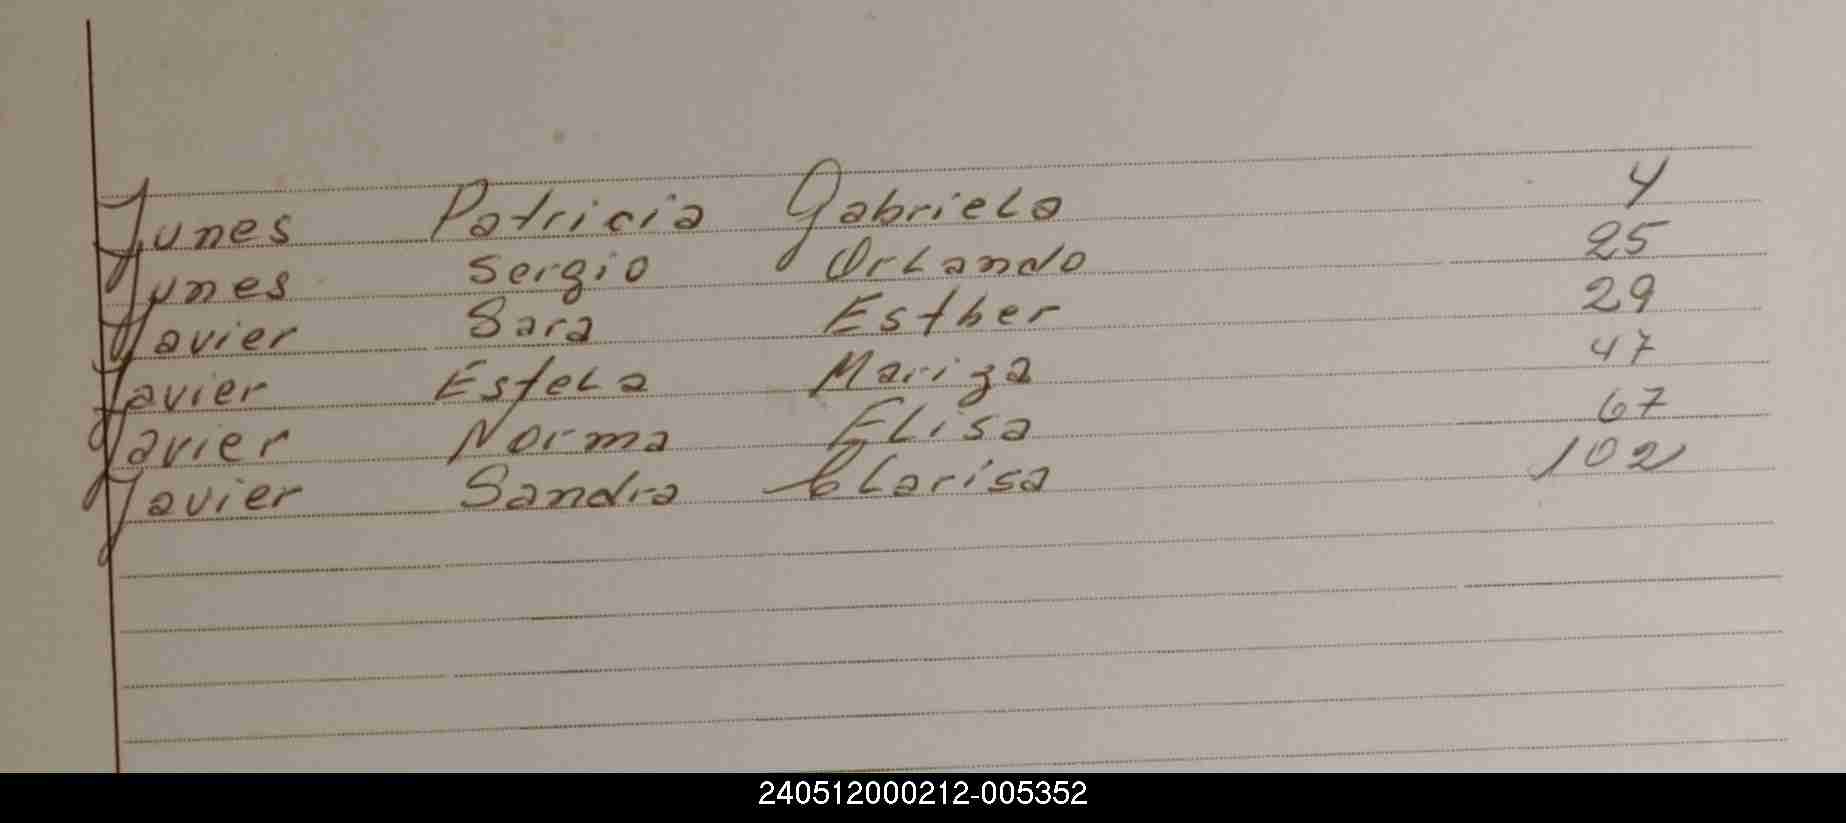 Junes Patricia Gabriela 4
Junes Sergio Orlando 25
Javier Sara Esther 29
Javier Estela Mariza 47
Javier Norma Elisa 67
Javier Sandra Clarisa 102
240512000212-005352